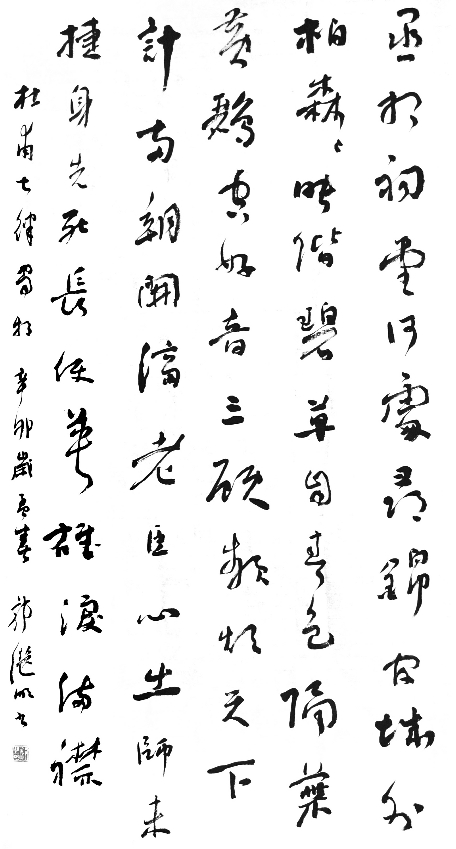 丞相祠堂何處尋錦官城外
柏森々映階碧草自春色隔葉
黃鸝空好音三顧頻煩天下
計兩朝開濟老臣心出師未
捷身先死長使英雄淚滿襟
杜甫七律蜀相 辛卯歲孟春 书